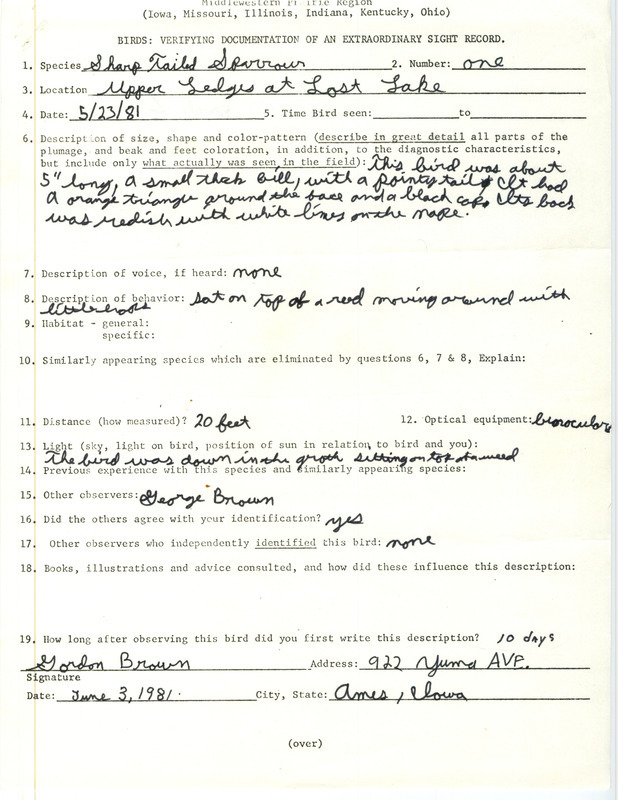 Middlewestern Prairie Region
(Iowa, Missouri, Illinois, Indiana, Kentucky, Ohio)
BIRDS: VERIFYING DOCUMENTATION OF AN EXTRAORDINARY SIGHT RECORD.
1. Species Sharp Tailed Sparrow 2. Number: one
3. Location Upper Ledges at Lost Lake
4. Date: 5/23/81 5. Time Bird seen: to
6. Description of size, shape and color-pattern (describe in great detail all parts of the
plumage, and beak and feet coloration, in addition, to the diagnostic characteristics,
but include only what actually was seen in the field): This bird was about
5" long, a small thck bill, with a pointy tail. It had
a orange triangle around the face and a black cap. Its back
was redish with white lines on the nape.
7. Description of voice, if heard: none
8. Description of behavior: sat on top of a reed moving around with
little hops
9. Habitat - general:
specific:
10. Similarly appearing species which are eliminated by questions 6, 7 & 8, Explain:
11. Distance (how measured)? 20 feet 12. Optical equipment: binoculars
13. Light (sky, light on bird, position of sun in relation to bird and you):
The bird was down in the groth sitting on top of a weed
14. Previous experience with this species and similarly appearing species:
15. Other observers: George Brown
16. Did the others agree with your identification? yes
17. Other observers who independently identified this bird: none
18. Books, illustrations and advice consulted, and how did these influence this description:
19. How long after observing this bird did you first write this description? 10 days
Gordon Brown Address: 922 Yuma AVE.
Signature
Date: June 3, 1981. City, State: Ames, Iowa
(over)